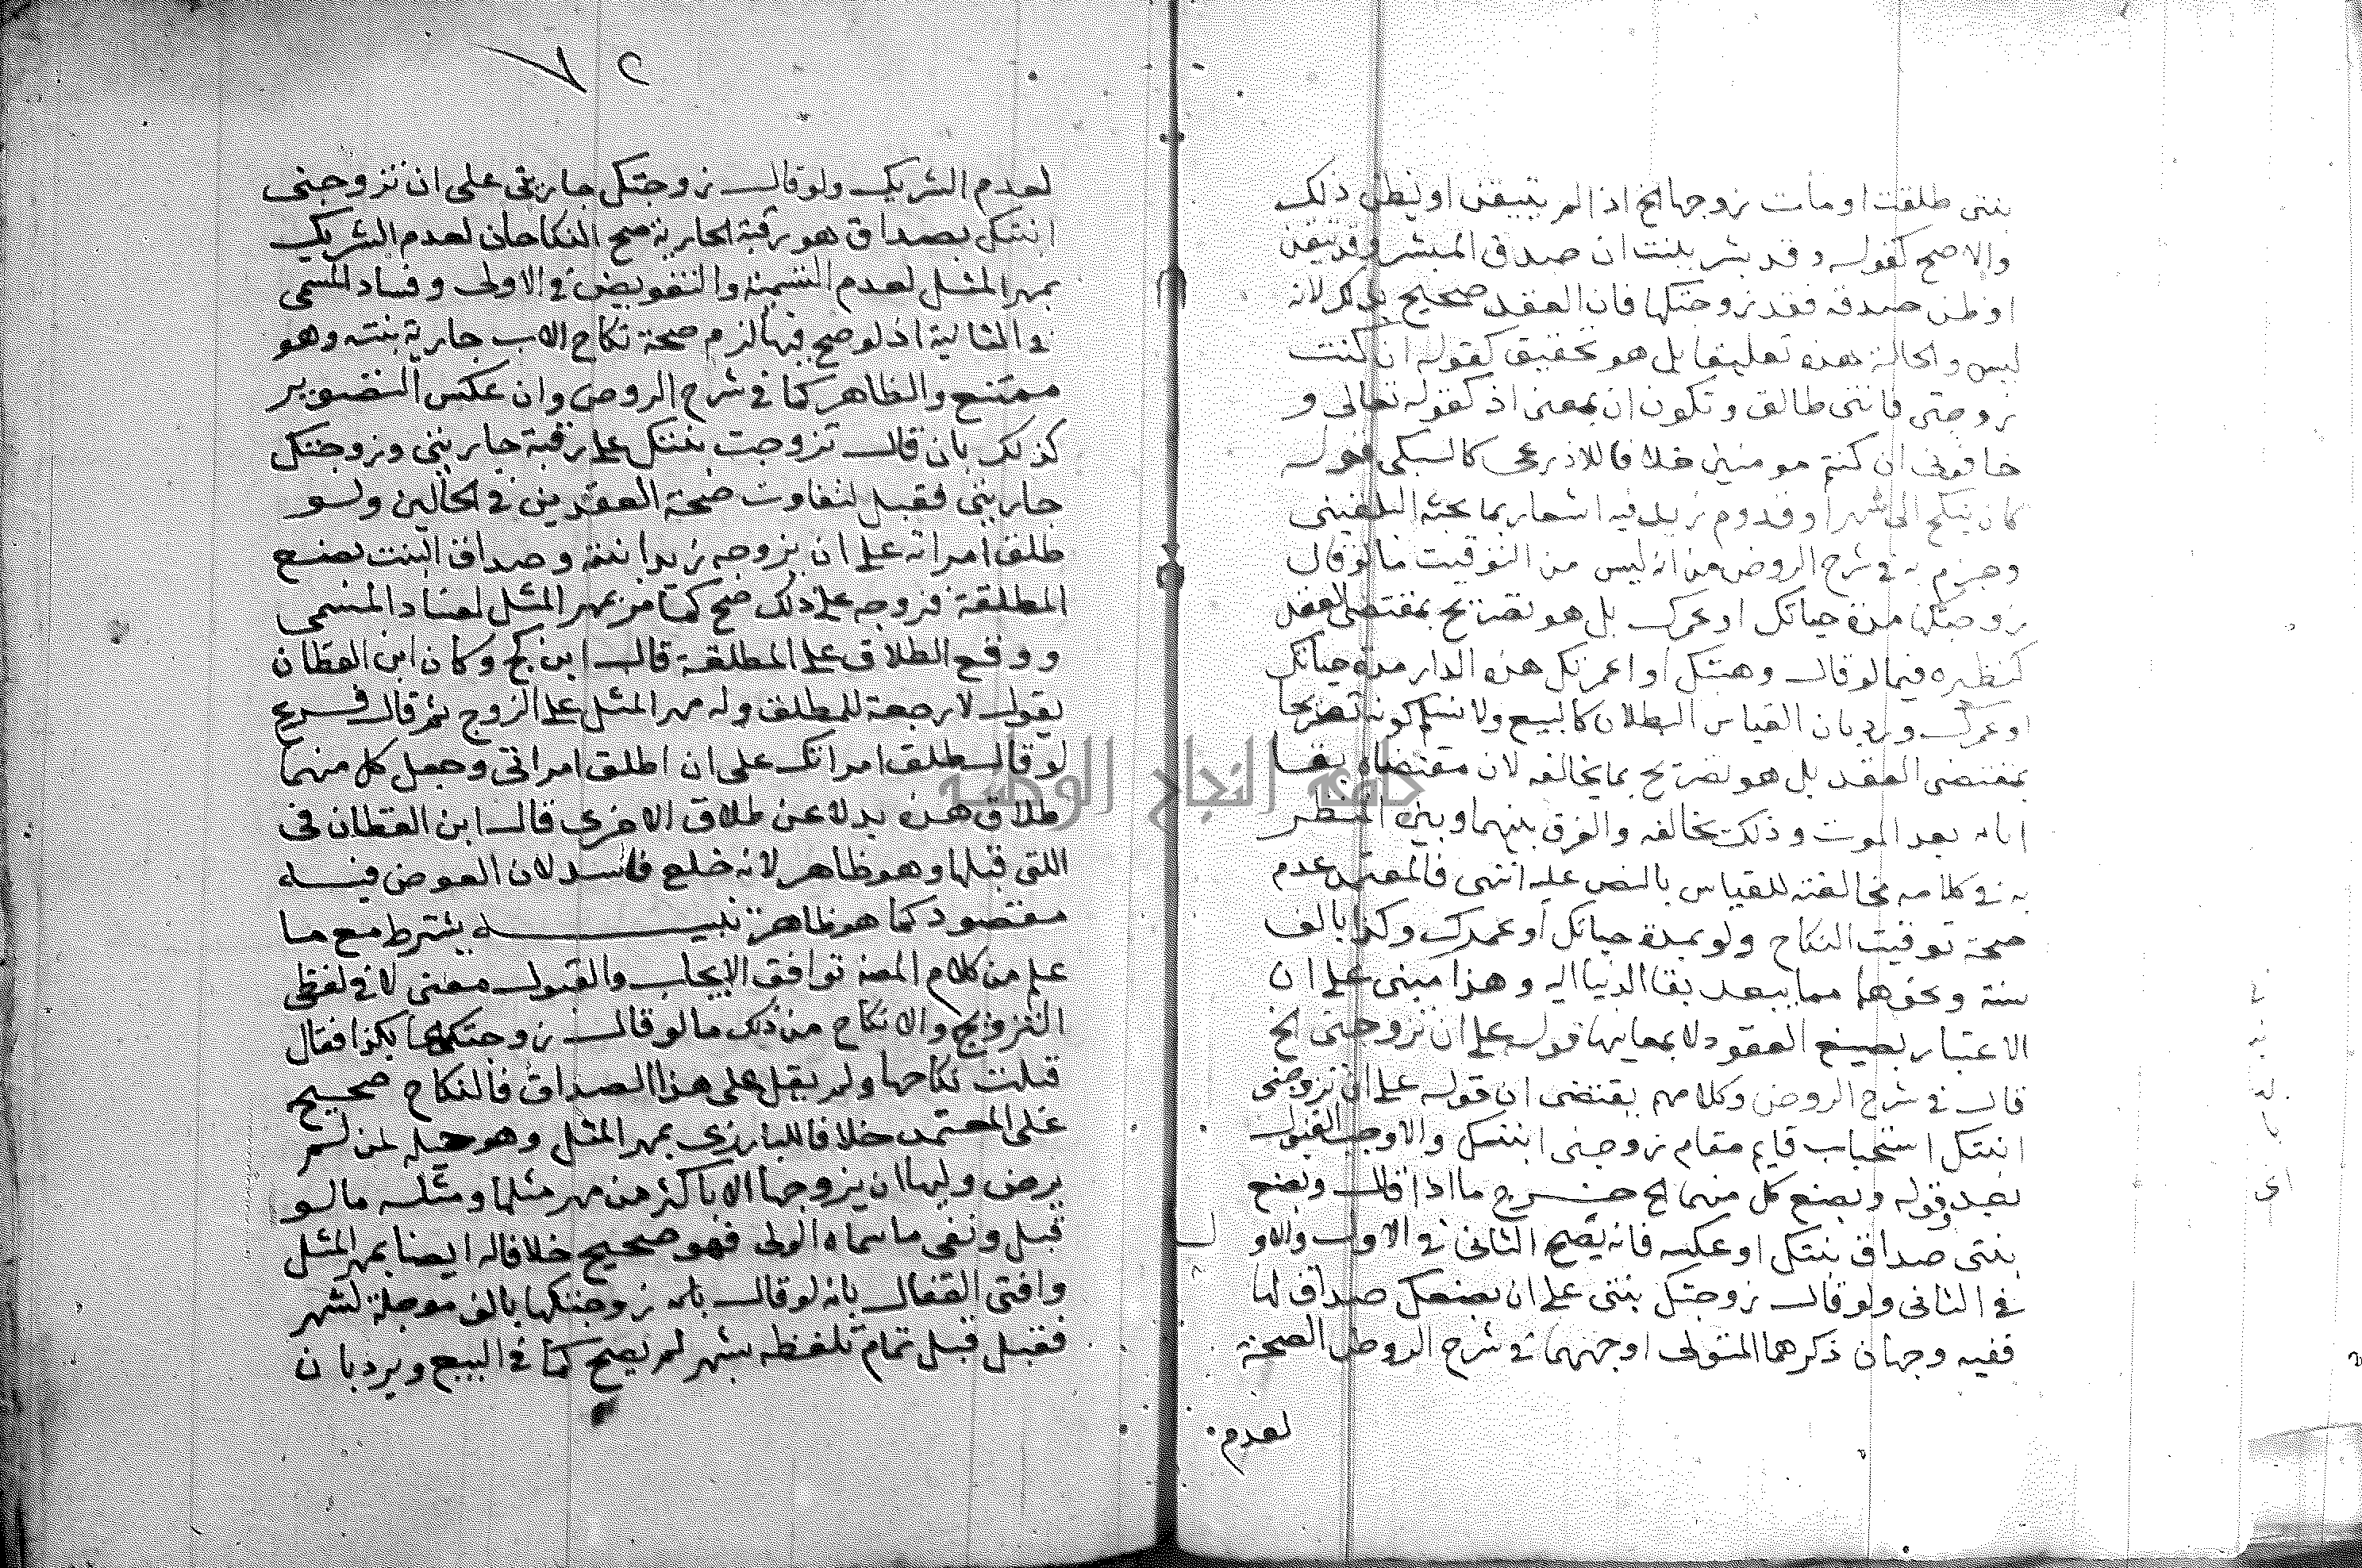 بنتى طلقت او مات زوجها الخ اذا لم يتيقن او يظن ذلك
والا صح كقوله وقد بشر ببنت ان صدق المبشر وقد تيقن
او ظن صدقه فقد زوجتكها فان العقد صحيح بل ذكر لانه
ليس والحالة هذه تعليقا بل هو تحقيق كقوله ان كنت
زوجتى فانتى طالق وتكون ان بمعنى اذ كقوله تعالى و
خافونى ان كنتم مومنين خلافا للاذرعى كالسبكى قوله
كان ينكح الى شهر او قدوم زيد فيه اشعار بما بحثه البلقينى
وجزم به فى شرح الروض من انه ليس من التوقيت ما لو قال
زوجتكها مدة حياتك او عمرك بل هو تصريح بمقتضى العقد
كنظيره فيما لو قال وهبتك او اعمرتك هذه الدار مدة حياتك
او عمرك ورد بان القياس البطلان كالبيع ولا نسلم كونه تصريحا
بمقتضى العقد بل هو تصريح بما يخالفه لان مقتضاه بقا
اثاره بعد الموت وذلك يخالفه والفرق بينهما وبين المنظر
به فى كلامه مخالفته للقياس بالنص عليه انتهى فالمعتمد عدم
صحة توقيت النكاح ولو بمدة حياتك او عمرك وكذا بالف
سنة ونحوها مما يبعد بقا الدنيا اليه وهذا مبنى على ان
الاعتبار بصيغ العقود لا بمعانيها قوله على ان تزوجنى الخ
قال فى شرح الروض وكلامهم يقتضى ان قوله على ان تزوجنى
ابنتك استحباب قايم مقام زوجنى ابنتك والاوجب القبول
بعد قوله وبضع كل منهما الخ خرج ما اذا قال وبضع
بنتى صداق بنتك او عكسه فانه يصح الثانى فى الاول والاو
فى الثانى ولو قال زوجتك بنتى على ان بضعك صداق لها
ففيه وجهان ذكرهما المتولى اوجههما فى شرح الروض الصحة
لعدم
٧٢
لعدم الشريك ولو قال زوجتك جاريتى على ان تزوجنى
ابنتك بصداق هو رقبة الجارية صح النكاحان لعدم الشريك
بمهر المثل لعدم التسمية والتفويض فى الاولى وفساد المسمى
فى الثانية اذ لو صح فيها لزم صحة نكاح الاب جارية بنته وهو
ممتنع والظاهر كما فى شرح الروض وان عكس التصوير
كذلك بان قال تزوجت بنتك على رقبة جاريتى وزوجتك
جاريتى فقبل لتفاوت صحة العقدين فى الحالين ولو
طلق امراته على ان يزوجه زيد ابنته وصداق البنت بضع
المطلقة فزوجه على ذلك صح كما مر بمهر المثل لفساد المسمى
ووقع الطلاق على المطلقة قال ابن كج وكان ابن القطان
يقول لا رجعة للمطلق وله مهر المثل على الزوج ثم قال فرع
لو قال طلق امراتك على ان اطلق امراتى وجعل كل منهما
طلاق هذه بدلا عن طلاق الاخرى قال ابن القطان فى
اللتى قبلها وهو ظاهر لانه خلع فاسد لان العوض فيه
مقصود كما هو ظاهر تنبيه يشترط مع ما
علم من كلام المصنف توافق الايجاب والقبول معنى لا فى لفظى
التزويج والانكاح من ذلك ما لو قال زوجتكها بكذا فقال
قبلت نكاحها ولم يقل على هذا الصداق فالنكاح صحيح
على المعتمد خلافا للبارزى بمهر المثل وهو حيلة لمن لم
يرض وليها ان يزوجها الا باكثر من مهر مثلها ومثله ما لو
قبل ونفى ما سماه الولى فهو صحيح خلافا له ايضا بمهر المثل
وافتى القفال بانه لو قال بله زوجتكها بالف موجلة لشهر
فقبل قبل تمام تلفظه بشهر لم يصح كما فى البيع ويرد بان